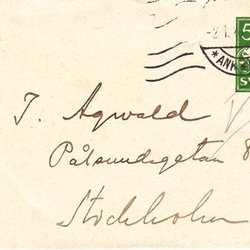 5
J. Agwald
Pålsundsgatan 8
Stockholm